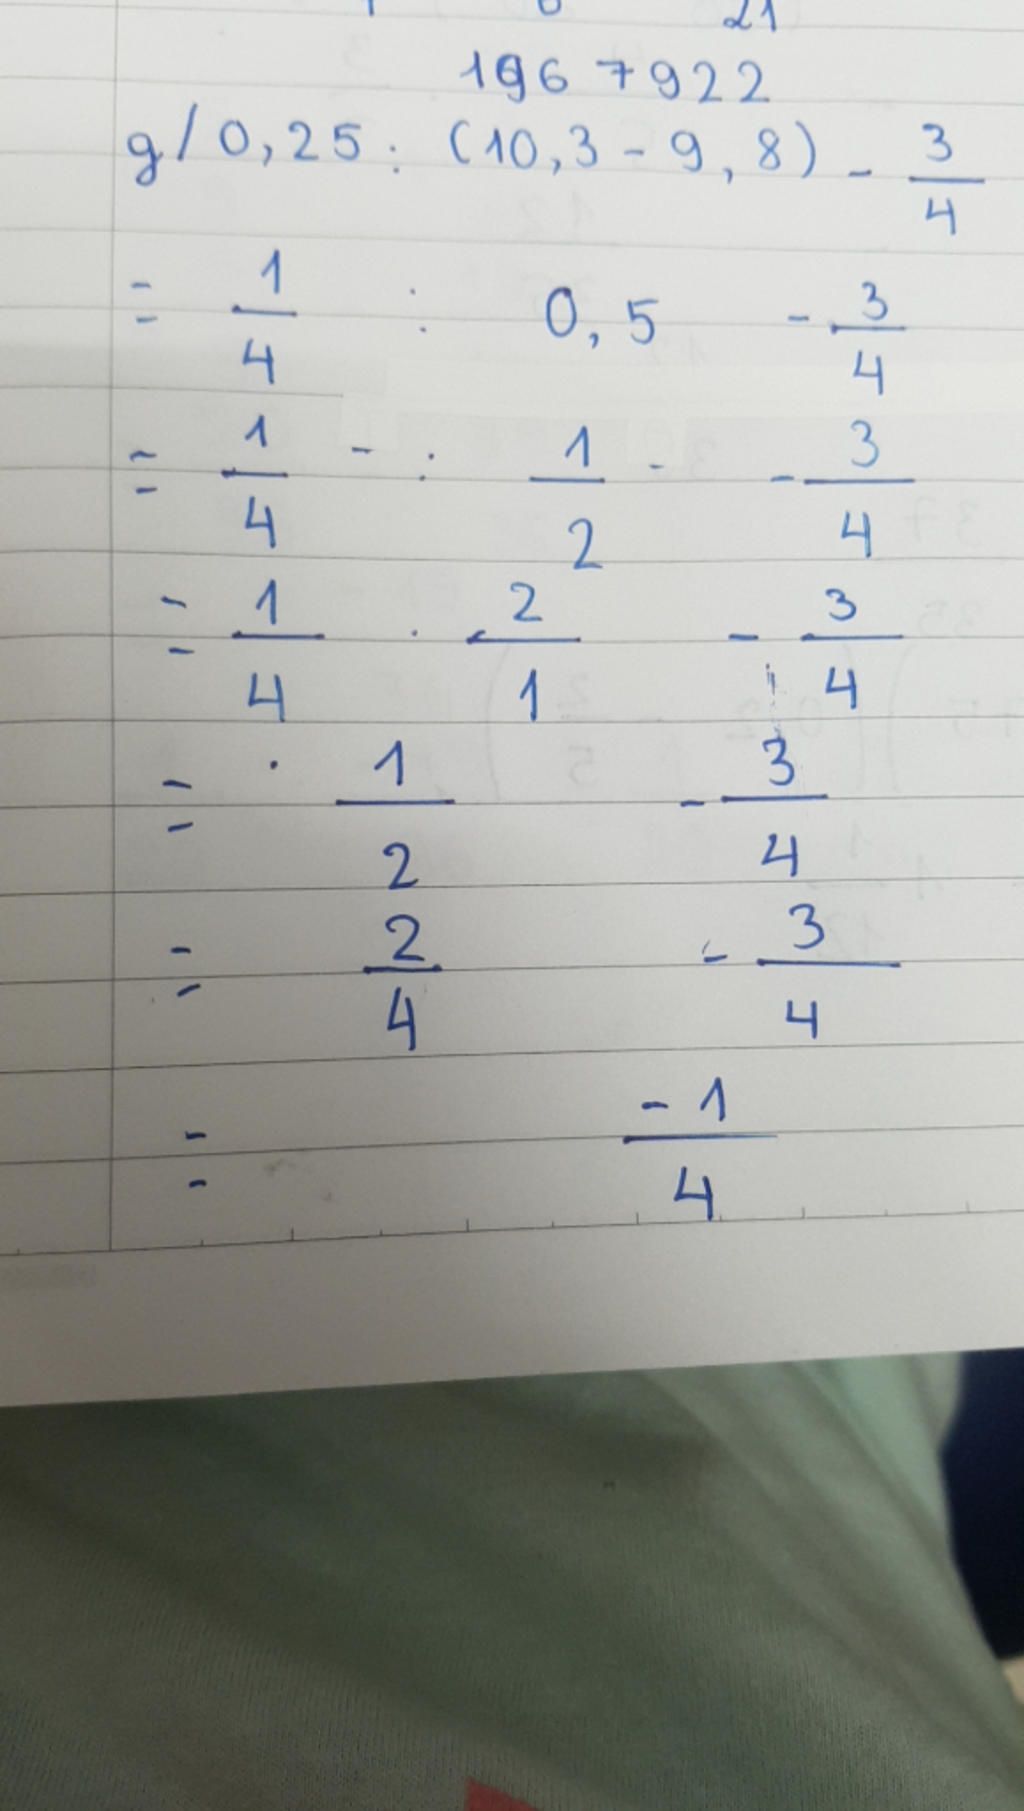 21
1967922
g/ 0,25 : (10,3 - 9,8) - 3/4
= 1/4 : 0,5 - 3/4
= 1/4 - : 1/2 - - 3/4
= 1/4 . 2/1 - 3/4
= . 1/2 - 3/4
= 2/4 - 3/4
= -1/4